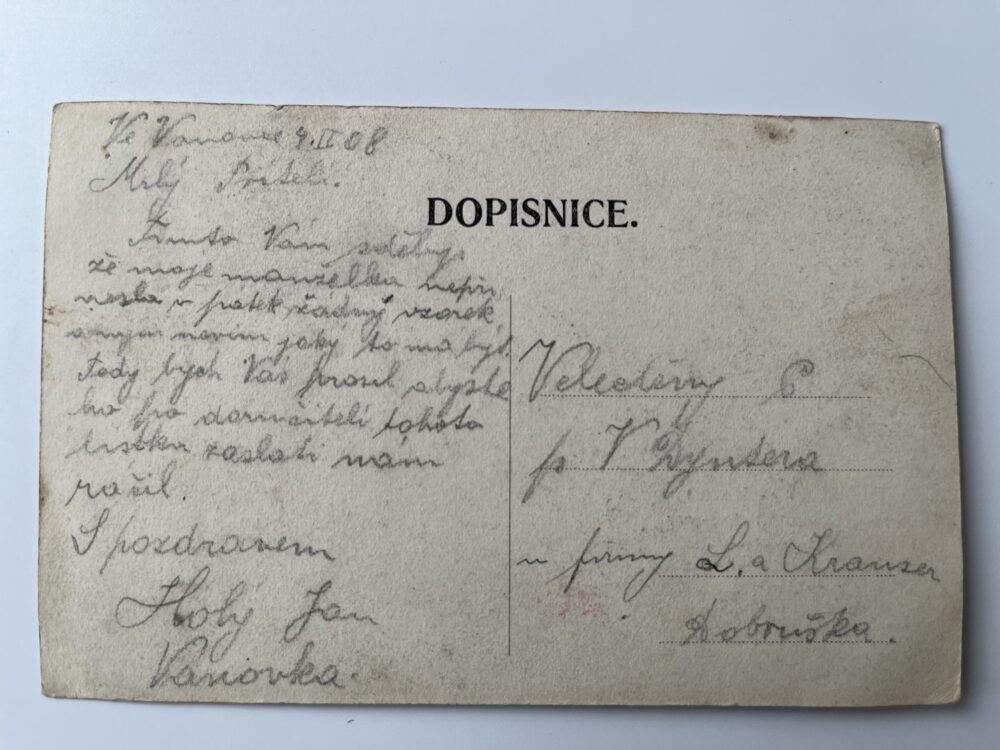 Ve Vanovce 4.II 08
Milý Příteli.
DOPISNICE.
Tímto Vám sděluji,
že moje manželka nepři
nesla v patek žádný vzorek
a nevím jaky to ma být.
Tedy bych Vás prosil abyste
ho po doručiteli tohoto
lístku zaslati nám
ráčil.
S pozdravem
Holý Jan
Vanovka.
Veledůstný P
p. V Dyntera
u firmy L. a Krauser
Dobruška.